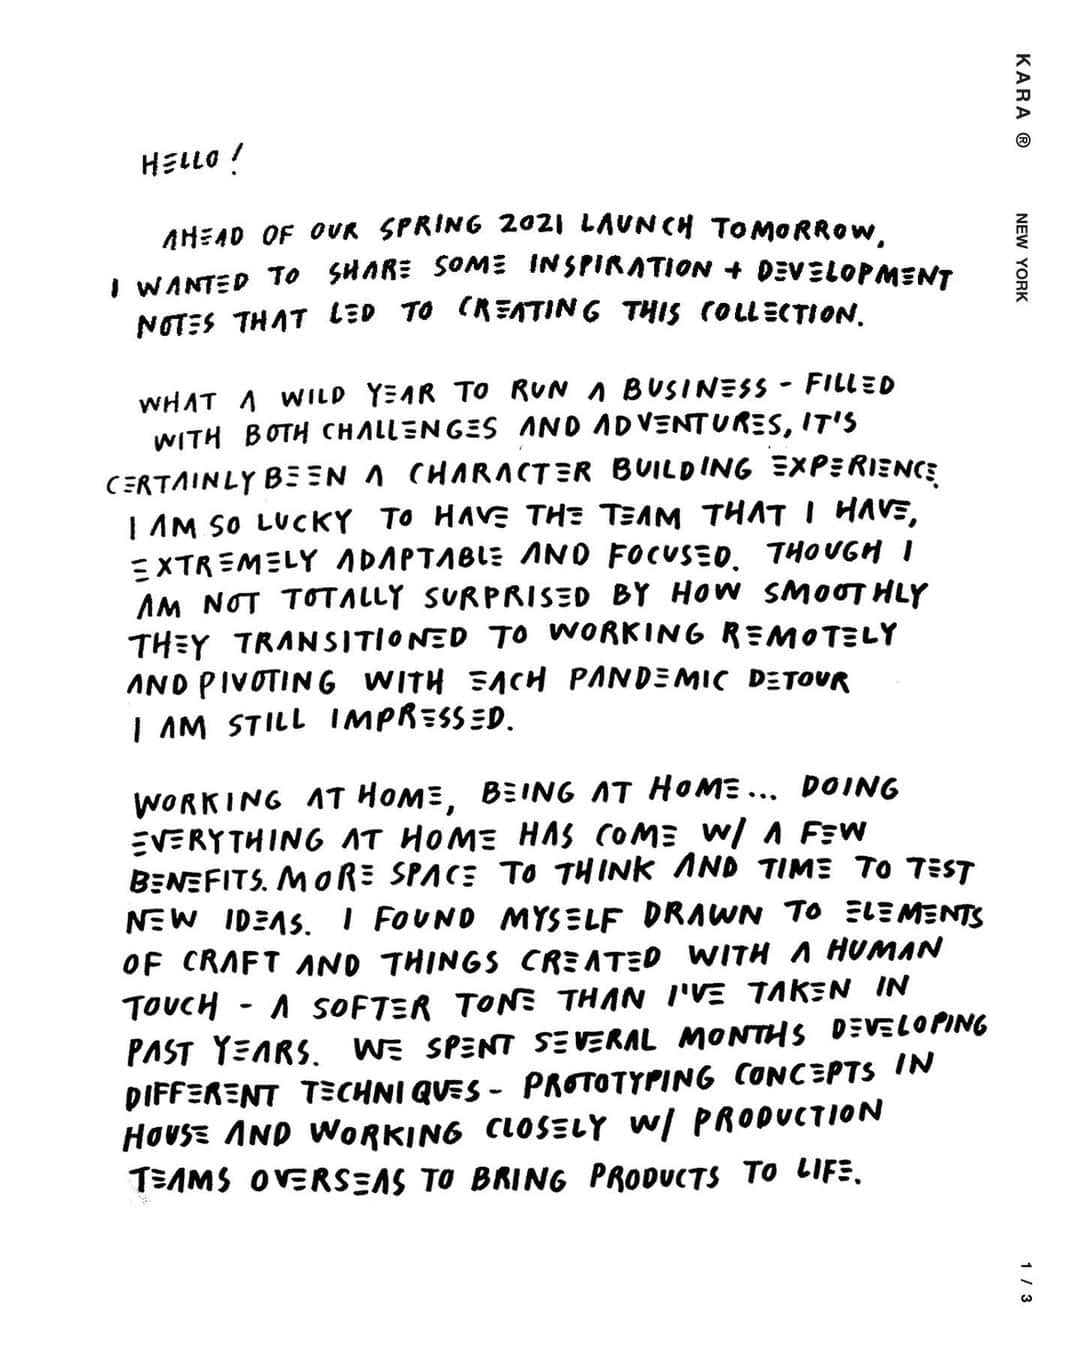 HELLO!
AHEAD OF OUR SPRING 2021 LAUNCH TOMORROW,
I WANTED TO SHARE SOME INSPIRATION + DEVELOPMENT
NOTES THAT LED TO CREATING THIS COLLECTION.
WHAT A WILD YEAR TO RUN A BUSINESS - FILLED
WITH BOTH CHALLENGES AND ADVENTURES, IT'S
CERTAINLY BEEN A CHARACTER BUILDING EXPERIENCE.
I AM SO LUCKY TO HAVE THE TEAM THAT I HAVE,
EXTREMELY ADAPTABLE AND FOCUSED. THOUGH I
AM NOT TOTALLY SURPRISED BY HOW SMOOTHLY
THEY TRANSITIONED TO WORKING REMOTELY
AND PIVOTING WITH EACH PANDEMIC DETOUR
I AM STILL IMPRESSED.
WORKING AT HOME, BEING AT HOME... DOING
EVERYTHING AT HOME HAS COME W/ A FEW
BENEFITS. MORE SPACE TO THINK AND TIME TO TEST
NEW IDEAS. I FOUND MYSELF DRAWN TO ELEMENTS
OF CRAFT AND THINGS CREATED WITH A HUMAN
TOUCH - A SOFTER TONE THAN I'VE TAKEN IN
PAST YEARS. WE SPENT SEVERAL MONTHS DEVELOPING
DIFFERENT TECHNIQUES - PROTOTYPING CONCEPTS IN
HOUSE AND WORKING CLOSELY W/ PRODUCTION
TEAMS OVERSEAS TO BRING PRODUCTS TO LIFE.
KARA ® NEW YORK
1 / 3